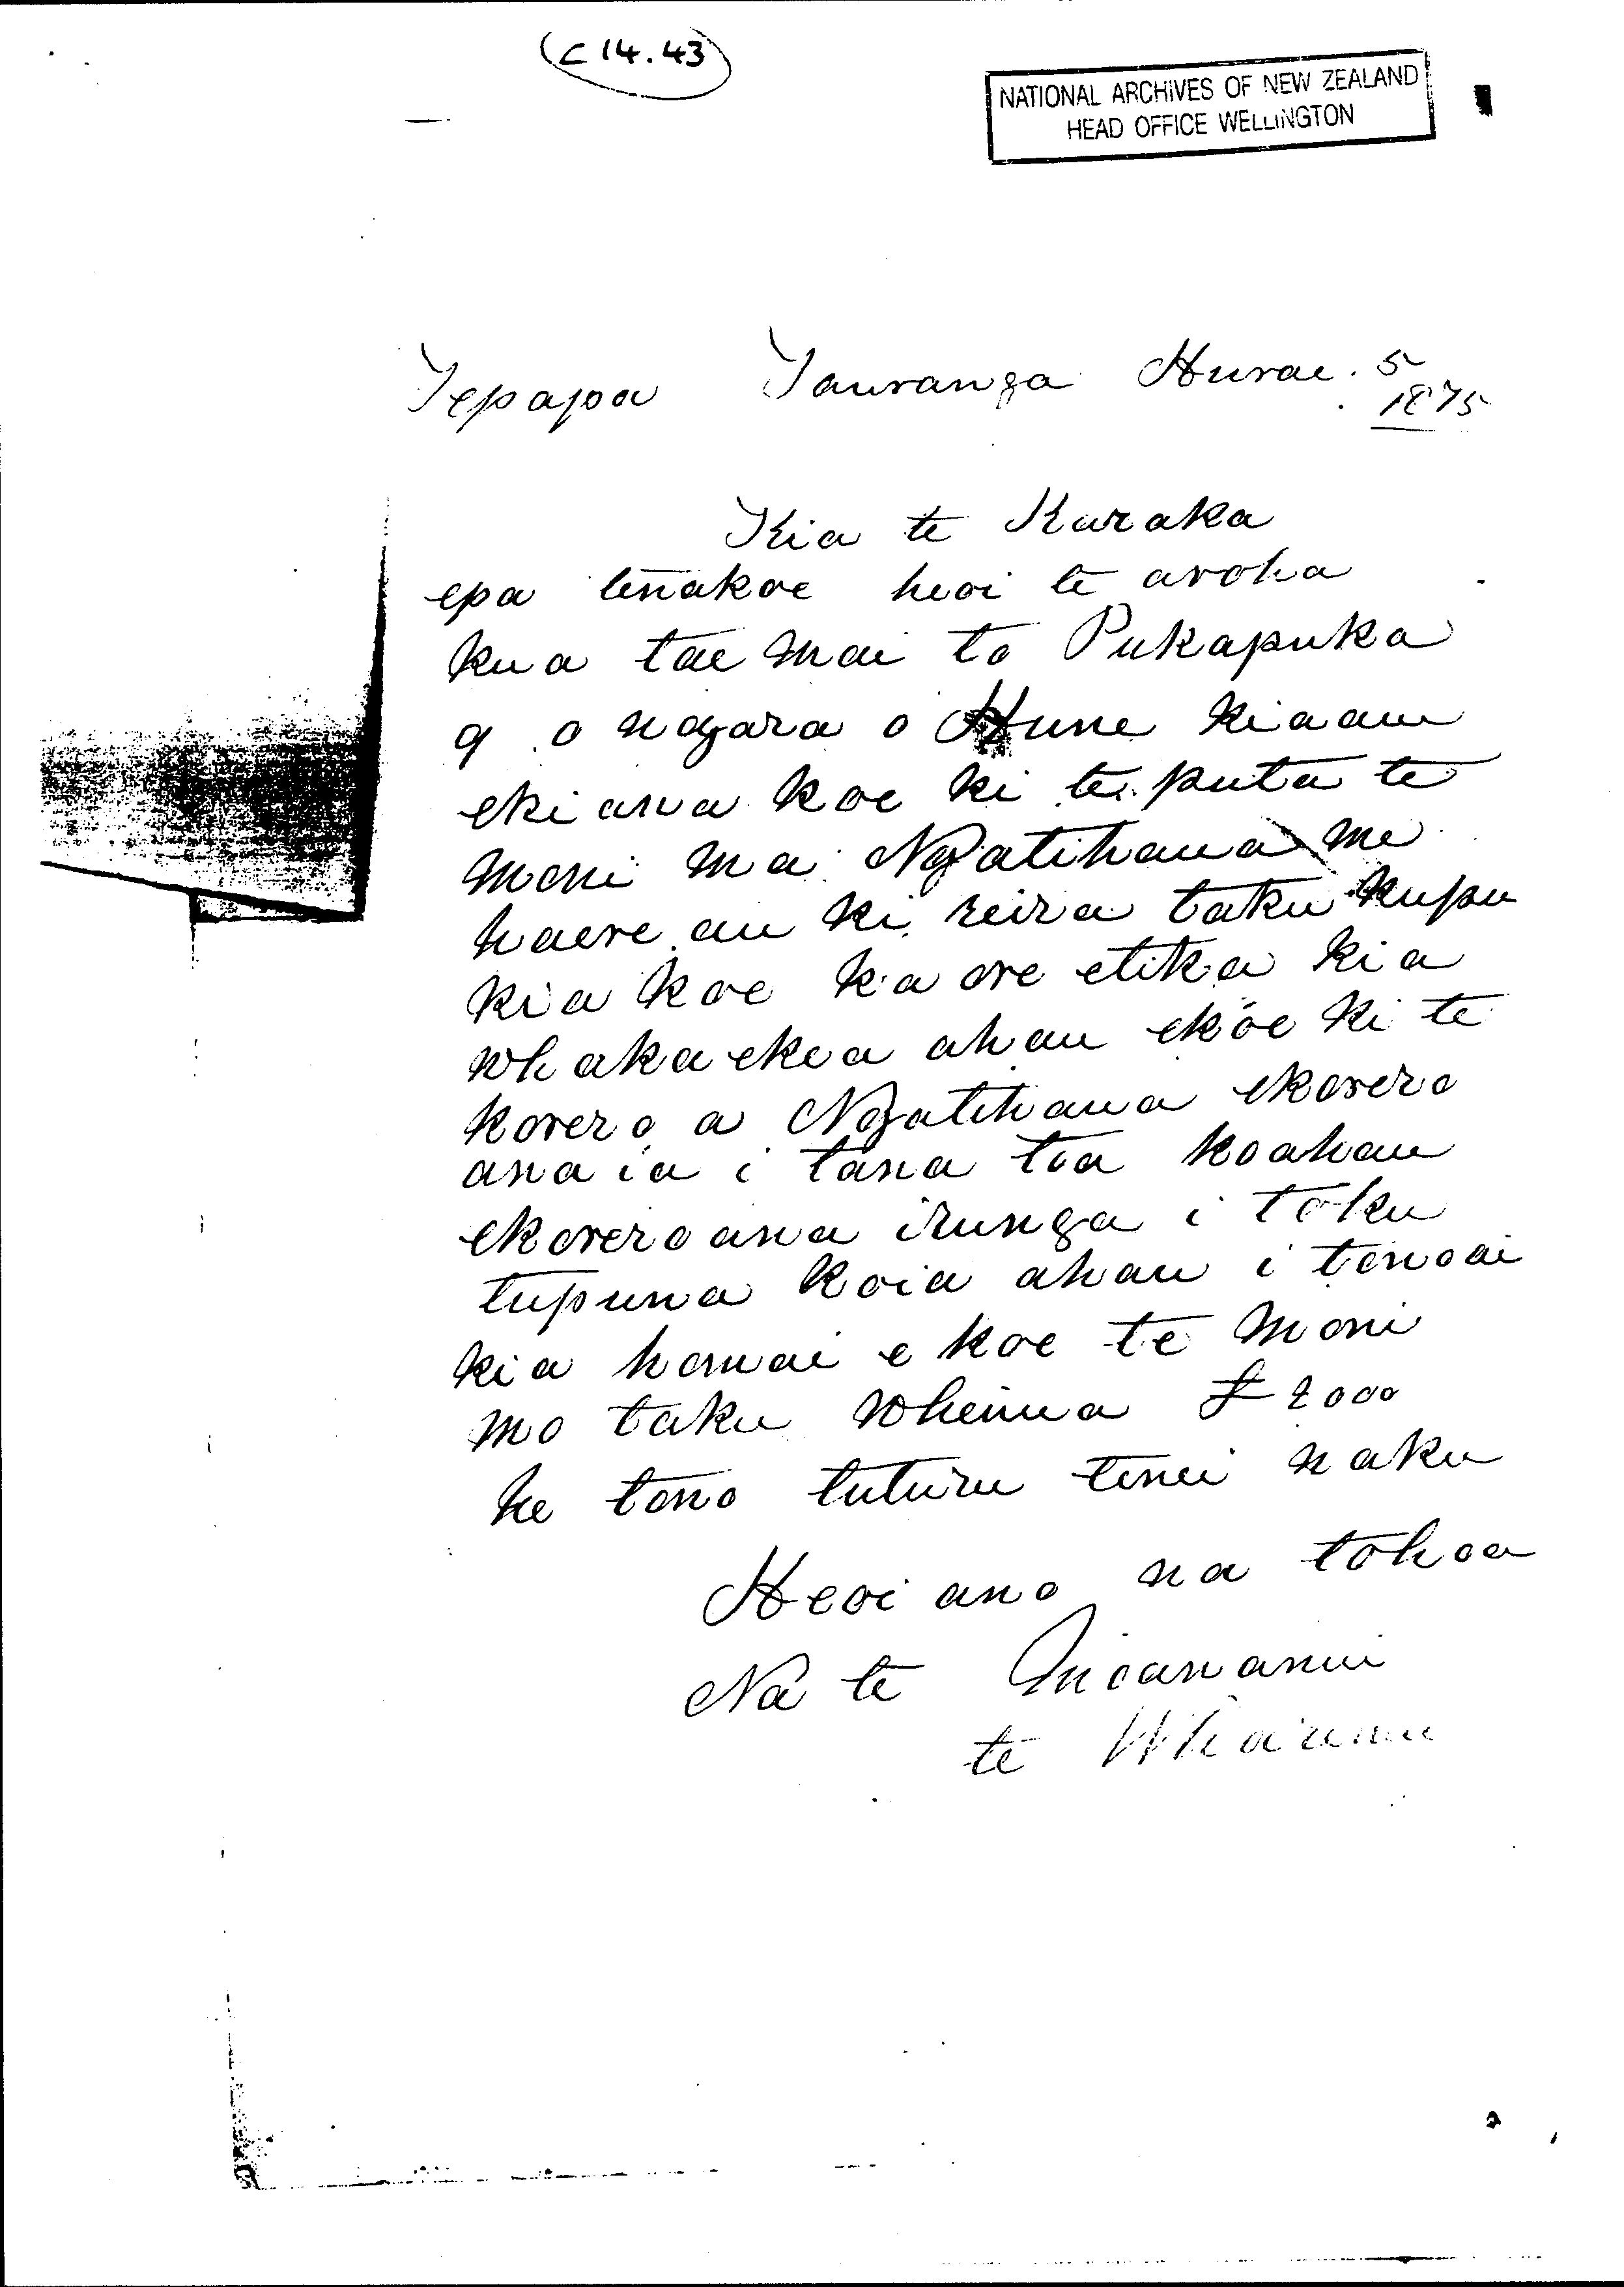 (C 14.43)
NATIONAL ARCHIVES OF NEW ZEALAND
HEAD OFFICE WELLINGTON
Tepapa Tauranga Hurae. 5
1875
Kia te Karaka
epa tenakoe heoi te aroha
kua tae mai to Pukapuka
9 o ngara o Hune kiaau
eki ana koe ki te puta te
moni ma Ngatihaua me
haere au ki reira taku kupu
kia koe ka ore etika kia
whakaekea ahau ekoe ki te
korero a Ngatihaua ekorero
ana ia i tana toa koahau
ekorero ana irunga i toku
tupuna koia ahau i tonoai
kia homai e koe te moni
mo taku whenua £2000
he tono tuturu tenei naku
Heoi ano na tohoa
Na te Moananui
te Wharenui